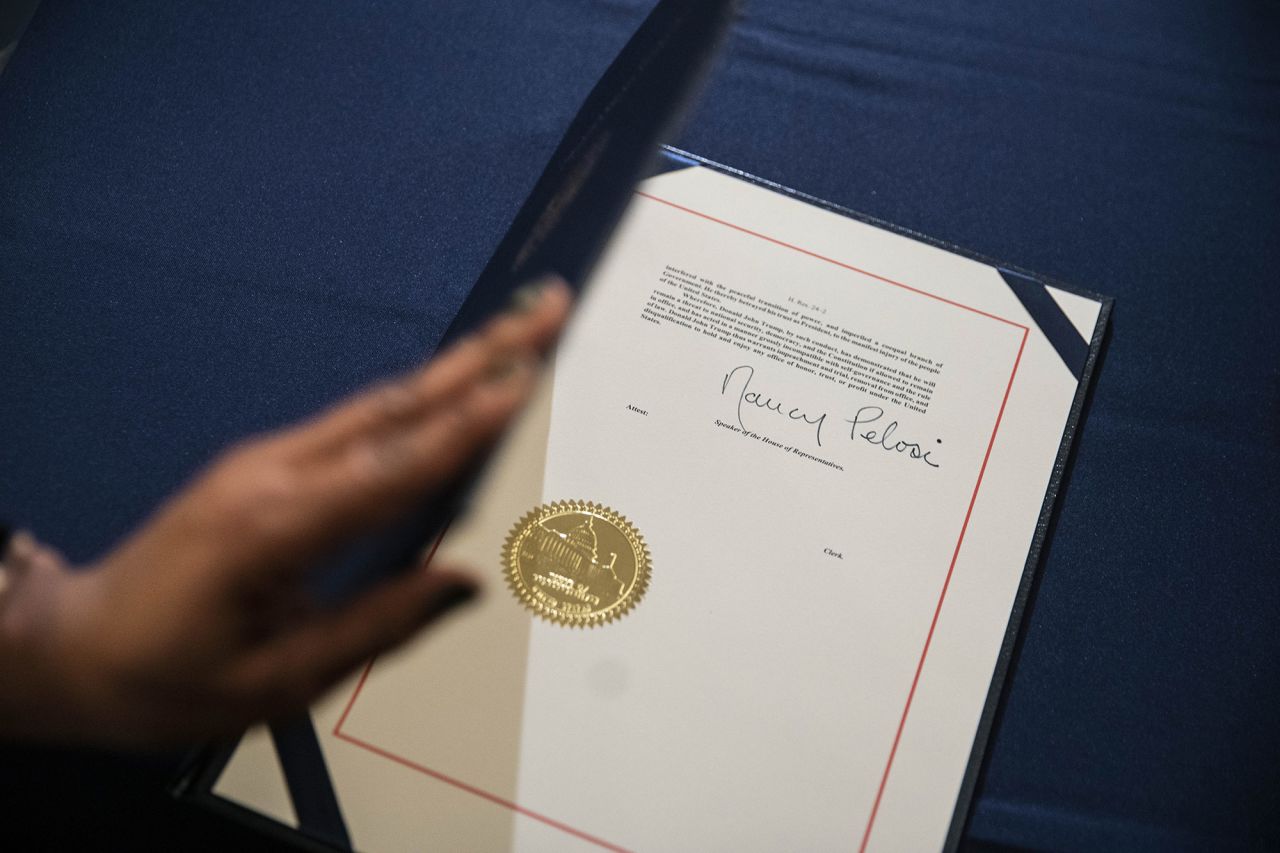 H. Res. 24–2
interfered with the peaceful transition of power, and imperiled a coequal branch of
Government. He thereby betrayed his trust as President, to the manifest injury of the people
of the United States.
Wherefore, Donald John Trump, by such conduct, has demonstrated that he will
remain a threat to national security, democracy, and the Constitution if allowed to remain
in office, and has acted in a manner grossly incompatible with self-governance and the rule
of law. Donald John Trump thus warrants impeachment and trial, removal from office, and
disqualification to hold and enjoy any office of honor, trust, or profit under the United
States.
Nancy Pelosi
Speaker of the House of Representatives.
Attest:
Clerk.